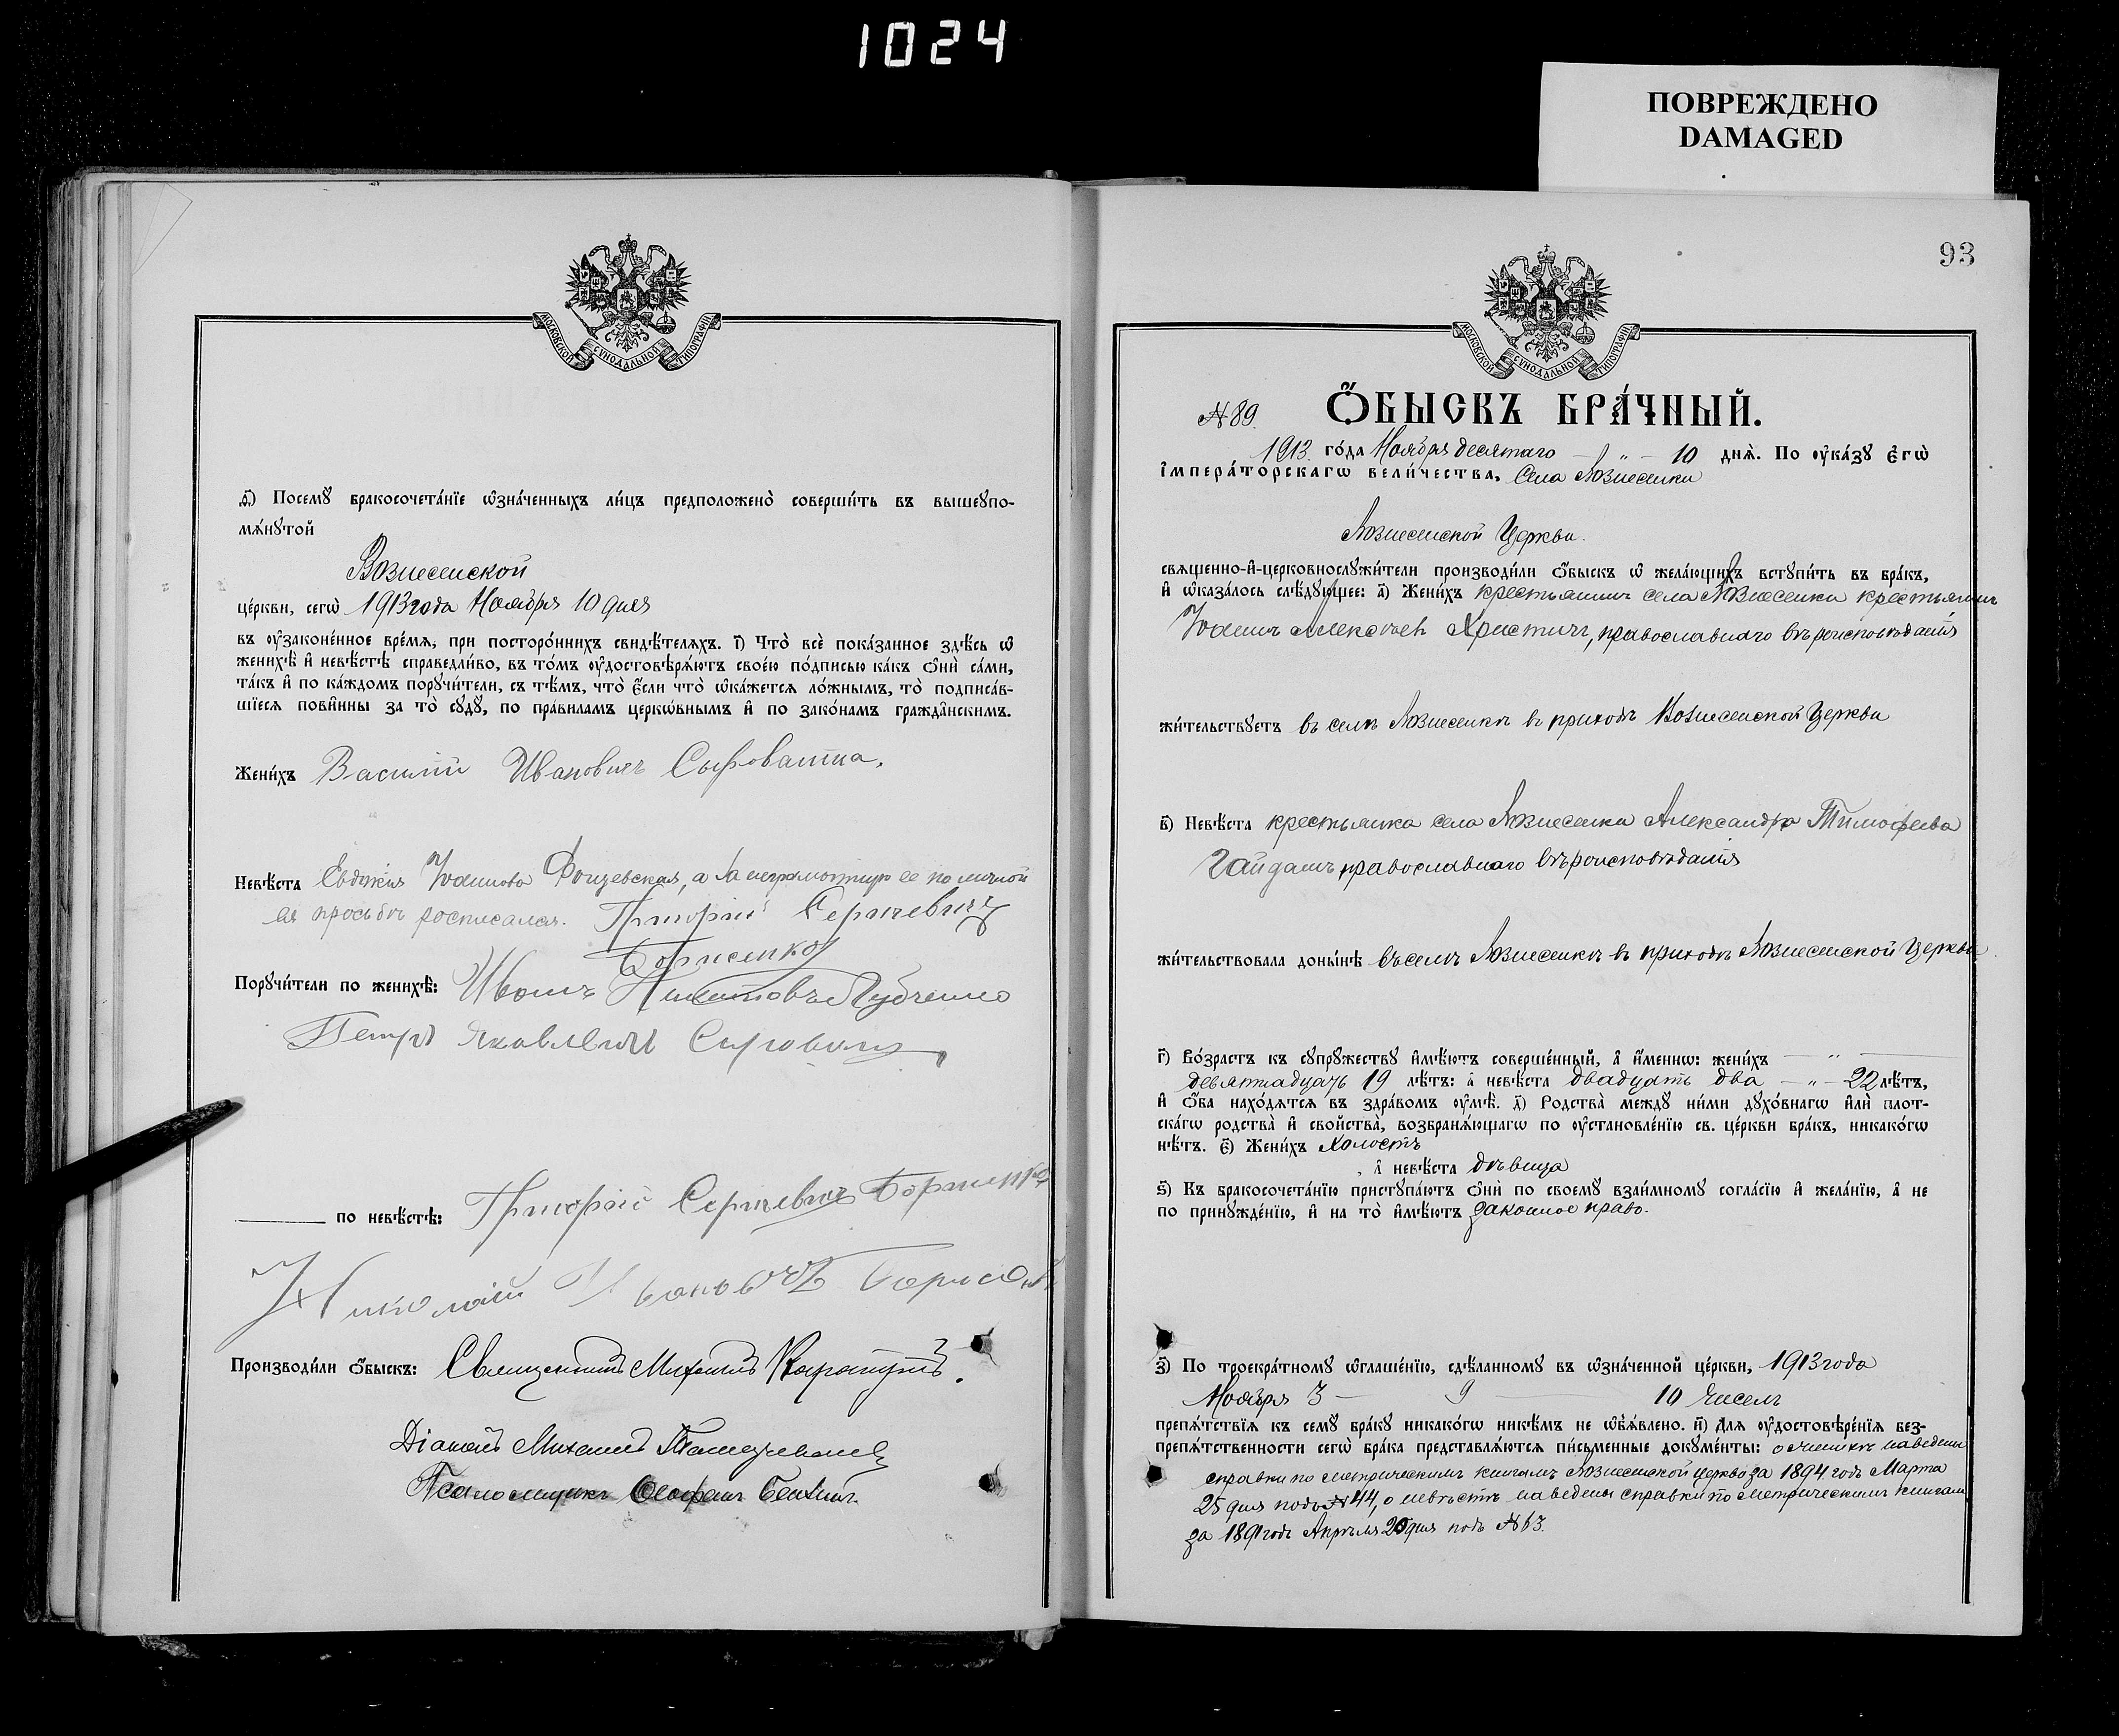 1024
ПОВРЕЖДЕНО
DAMAGED
МОСКОВСКОЙ СѴНОДАЛЬНОЙ ТИПОГРАФІИ
ѳ҃) Посемꙋ бракосочета́нїе ѡ҆зна́ченныхъ ли́цъ предположено̀ соверши́ть въ вышеꙋпо-
мѧ́нꙋтой
Вознесенской
це́ркви, сегѡ̀ 1913 года Ноября 10 дня
въ ᲂу҆зако́ненное вре́мѧ, при посторо́ннихъ свидѣ́телѧхъ. і҃) Что̀ всѐ пока́занное здѣ́сь ѡ҆
женихѣ̀ и҆ невѣ́стѣ справедли́во, въ то́мъ ᲂу҆достовѣрѧ́ютъ свое́ю по́дписью ка́къ ѻ҆нѝ са́ми,
та́къ и҆ по ка́ждомъ порꙋчи́тели, съ тѣ́мъ, что̀ є҆́сли что̀ ѡ҆ка́жетсѧ ло́жнымъ, то̀ подписа́в-
шїесѧ пови́нны за то̀ сꙋдꙋ̀, по пра́виламъ церкѡ́внымъ и҆ по зако́намъ гражда́нскимъ.
Жени́хъ Василій Ивановичъ Сыроватка.
Невѣ́ста Евдокія Іоаннова, а за неграмотную ее по личной
ея просьбѣ росписался. Григорій Сергѣевичъ
Борисенко
Порꙋчи́тели по женихѣ̀: Иванъ Губченко
Петръ Яковлевичъ
по невѣ́стѣ: Григорій Сергѣевичъ Борисенко
Николай Ивановичъ Борисенко
Производи́ли ѻ҆́быскъ: Священникъ Михаилъ
Діаконъ Михаилъ
Псаломщикъ Ѳеофанъ
93
МОСКОВСКОЙ СѴНОДАЛЬНОЙ ТИПОГРАФІИ
№ 89.
Ѻ҆́БЫСКЪ БРА́ЧНЫЙ.
1913 го́да Ноября десятаго — „ — 10 днѧ̀. По ᲂу҆ка́зꙋ є҆гѡ̀
і҆мпера́торскагѡ вели́чества, Села Вознесенки
Вознесенской Церкви.
свѧщенно-и҆-церковнослꙋжи́тели производи́ли ѻ҆́быскъ ѡ҆ жела́ющихъ встꙋпи́ть въ бра́къ,
и҆ ѡ҆каза́лось слѣ́дꙋющее: а҃) Жени́хъ крестьянинъ села Вознесенки крестьянинъ
Іоаннъ Алексѣевъ Христичъ, православнаго вѣроисповѣданія
жи́тельствꙋетъ въ селѣ Вознесенкѣ въ приходѣ Вознесенской Церкви
в҃) Невѣ́ста крестьянка села Вознесенки Александра Тимофеева
Гайдашъ православнаго вѣроисповѣданія
жи́тельствовала доны́нѣ въ селѣ Вознесенкѣ въ приходѣ Вознесенской Церкви.
г҃) Во́зрастъ къ сꙋпрꙋ́жествꙋ и҆мѣ́ютъ соверше́нный, а҆ и҆́меннѡ: жени́хъ — „ —
девятнадцать 19 лѣ́тъ: а҆ невѣ́ста двадцать два — „ — 22 лѣ́тъ,
и҆ ѻ҆́ба нахо́дѧтсѧ въ здра́вомъ ᲂу҆мѣ̀. д҃) Родства̀ междꙋ̀ ни́ми дꙋхо́внагѡ и҆лѝ плот-
ска́гѡ родства̀ и҆ сво́йства, возбранѧ́ющагѡ по ᲂу҆становле́нїю св. це́ркви бра́къ, никако́гѡ
нѣ́тъ. є҃) Жени́хъ холостъ
, а҆ невѣ́ста дѣвица
ѕ҃) Къ бракосочета́нїю пристꙋпа́ютъ ѻ҆нѝ по своемꙋ̀ взаи́мномꙋ согла́сїю и҆ жела́нїю, а҆ не
по принꙋжде́нїю, и҆ на то̀ и҆мѣ́ютъ законное право.
з҃) По троекра́тномꙋ ѡ҆глаше́нїю, сдѣ́ланномꙋ въ ѡ҆зна́ченной це́ркви, 1913 года
Ноября 3 — 9 — 10 чиселъ
препѧ́тствїѧ къ семꙋ̀ бра́кꙋ никако́гѡ никѣ́мъ не ѡ҆б̾ѧ́влено. и҃) Длѧ ᲂу҆достовѣре́нїѧ без-
препѧ́тственности сегѡ̀ бра́ка представлѧ́ютсѧ пи́сьменные докꙋме́нты: о женихѣ наведены
справки по метрическимъ книгамъ Вознесенской церкви за 1894 годъ Марта
25 дня подъ № 44, о невѣстѣ наведены справки по метрическимъ книгам
за 1891 годъ Апрѣля 20 дня подъ № 63.